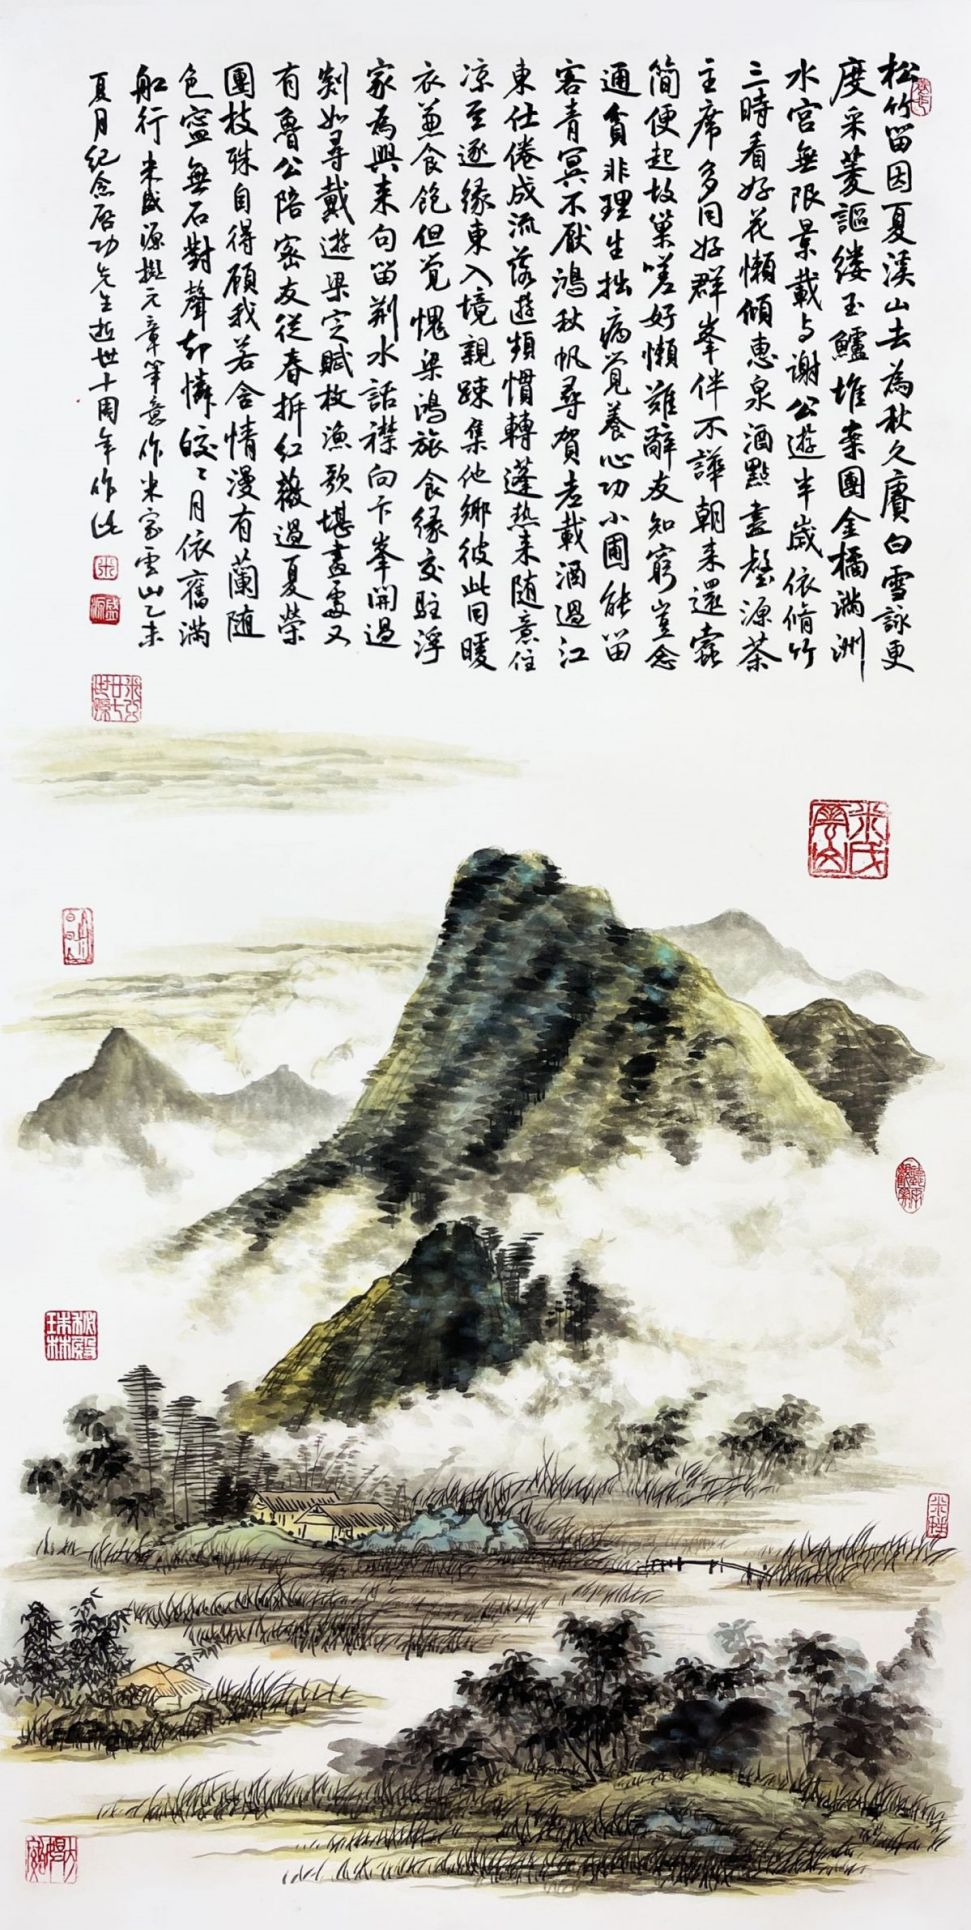 松竹留因夏溪山去為秋久賡白雪詠更
度采菱謳缕玉鱸堆案團金橘滿洲
水宮無限景載与謝公遊半歲依脩竹
三時看好花懶傾惠泉酒點盡壑源茶
主席多同好群峯伴不譁朝来還蠹
简便起故巢嗟好懶難辭友知窮豈念
通貧非理生拙病覺養心功小圃能留
客青冥不厭鴻秋帆尋賀老載酒過江
東仕倦成流落遊頻慣轉蓬热来随意住
凉至逐緣東入境親疎集他鄉彼此同暖
衣兼食飽但覺愧梁鴻旅食緣交駐浮
家為興来句留荆水話襟向卞峯開過
剡如尋戴遊梁定賦枚漁歌堪畫處又
有魯公陪密友從春拆紅薇過夏榮
團枝殊自得顧我若含情漫有蘭随
色寧無石對聲却憐皎〻月依舊滿
船行 米盛源擬元章筆意作米家雲山乙未
夏月紀念啓功先生逝世十周年作此
米氏雲山
秘殿珠林